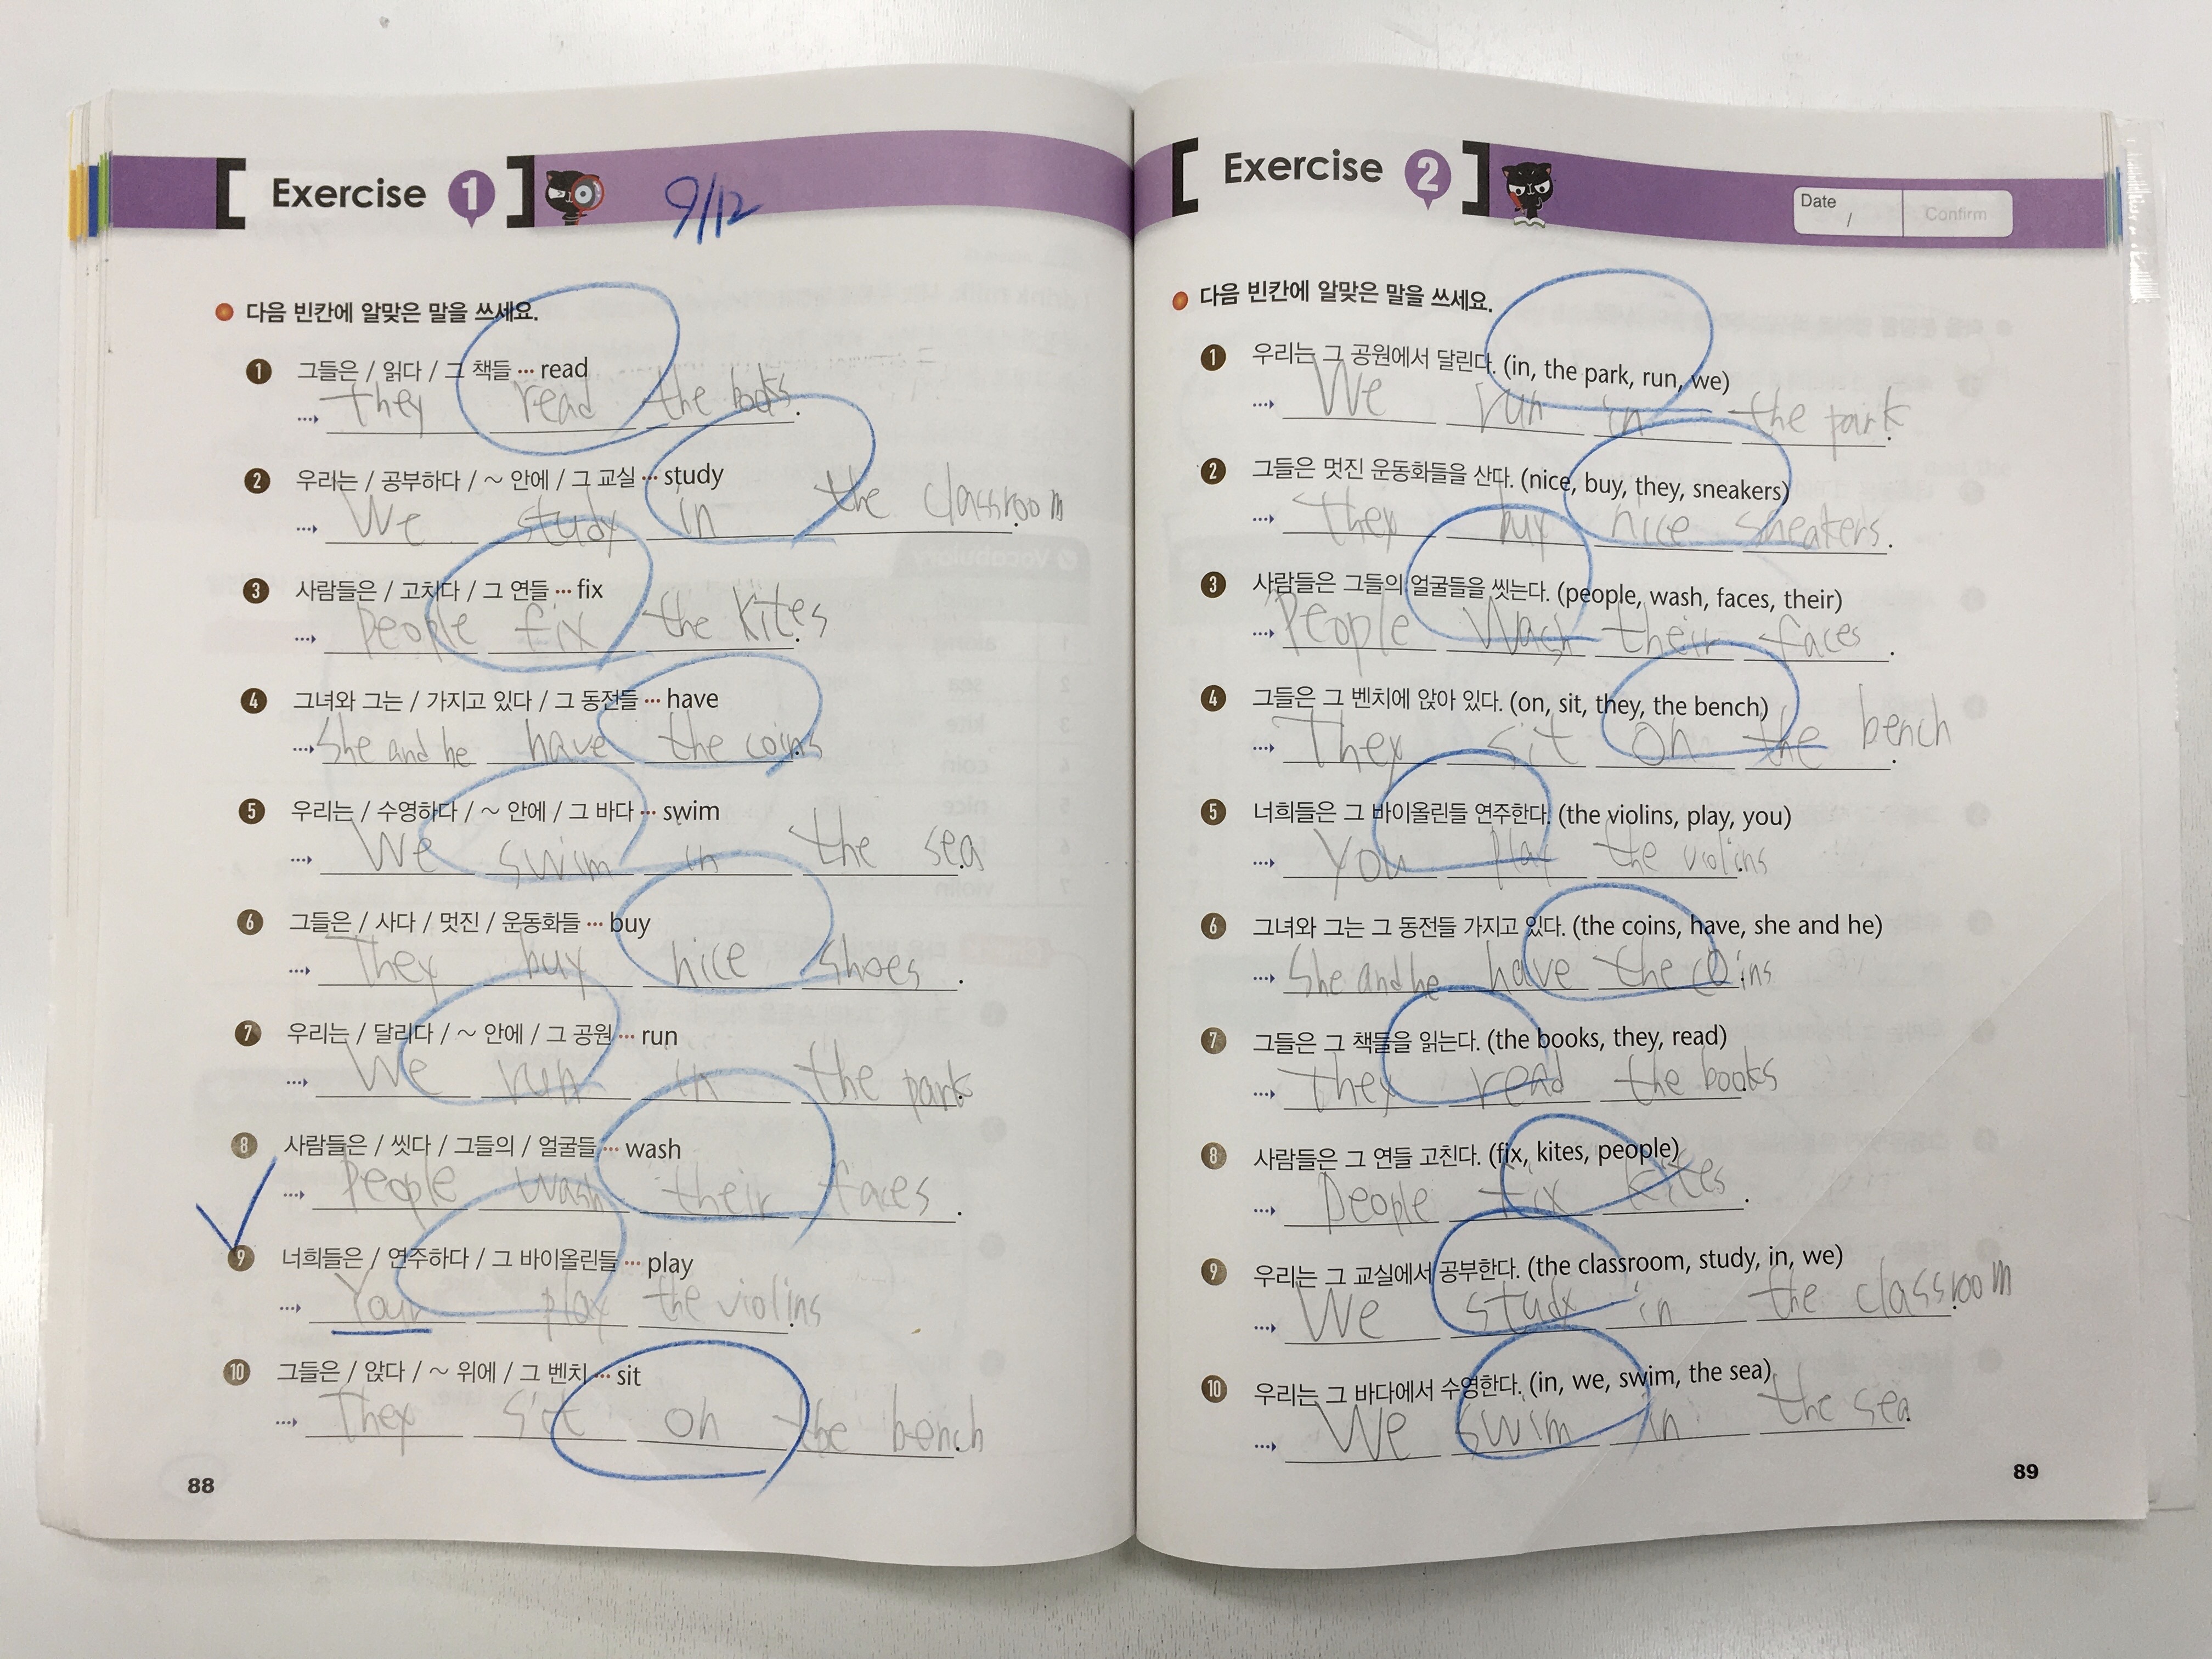 [ Exercise 1 ]
9/12
다음 빈칸에 알맞은 말을 쓰세요.
1 그들은 / 읽다 / 그 책들 ··· read
they read the books.
2 우리는 / 공부하다 / ~ 안에 / 그 교실 ··· study
We study in the classroom.
3 사람들은 / 고치다 / 그 연들 ··· fix
People fix the kites.
4 그녀와 그는 / 가지고 있다 / 그 동전들 ··· have
She and he have the coins.
5 우리는 / 수영하다 / ~ 안에 / 그 바다 ··· swim
We swim in the sea.
6 그들은 / 사다 / 멋진 / 운동화들 ··· buy
They buy nice shoes.
7 우리는 / 달리다 / ~ 안에 / 그 공원 ··· run
We run in the park.
8 사람들은 / 씻다 / 그들의 / 얼굴들 ··· wash
People wash their faces.
9 너희들은 / 연주하다 / 그 바이올린들 ··· play
Your play the violins.
10 그들은 / 앉다 / ~ 위에 / 그 벤치 ··· sit
They sit on the bench.
88
[ Exercise 2 ]
Date / Confirm
다음 빈칸에 알맞은 말을 쓰세요.
1 우리는 그 공원에서 달린다. (in, the park, run, we)
We run in the park.
2 그들은 멋진 운동화들을 산다. (nice, buy, they, sneakers)
they buy nice sneakers.
3 사람들은 그들의 얼굴들을 씻는다. (people, wash, faces, their)
People wash their faces.
4 그들은 그 벤치에 앉아 있다. (on, sit, they, the bench)
They sit on the bench.
5 너희들은 그 바이올린들 연주한다. (the violins, play, you)
You play the violins.
6 그녀와 그는 그 동전들 가지고 있다. (the coins, have, she and he)
She and he have the coins.
7 그들은 그 책들을 읽는다. (the books, they, read)
They read the books.
8 사람들은 그 연들 고친다. (fix, kites, people)
People fix kites.
9 우리는 그 교실에서 공부한다. (the classroom, study, in, we)
We study in the classroom.
10 우리는 그 바다에서 수영한다. (in, we, swim, the sea)
We swim in the sea.
89